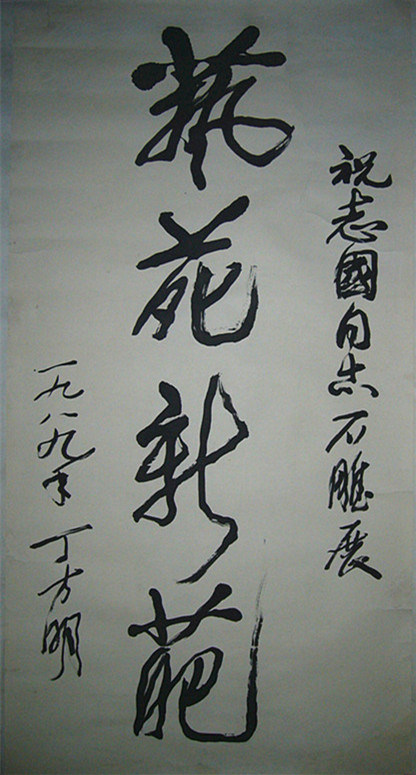 祝志國同志石雕展
藝苑新葩
一九八九年 丁方明